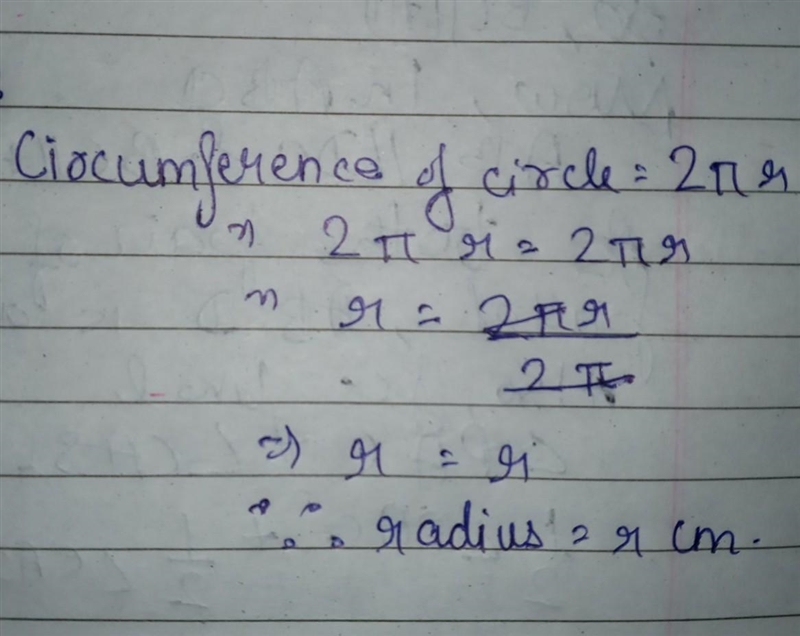 Circumference of circle = 2πr
⇒ 2πr = 2πr
⇒ r = 2πr / 2π
⇒ r = r
∴ radius = r cm.